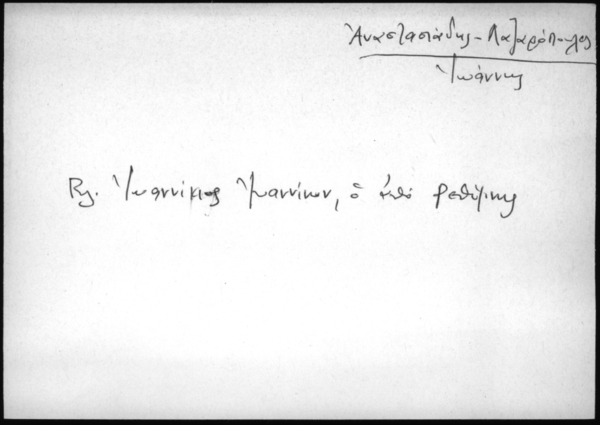 Ἀναστασιάδης - Λαζαρόπουλος
Ἰωάννης
Βλ. Ἰωαννίκιος Ἰωαννίκων, ὁ ἀπὸ Ρεθύμνης